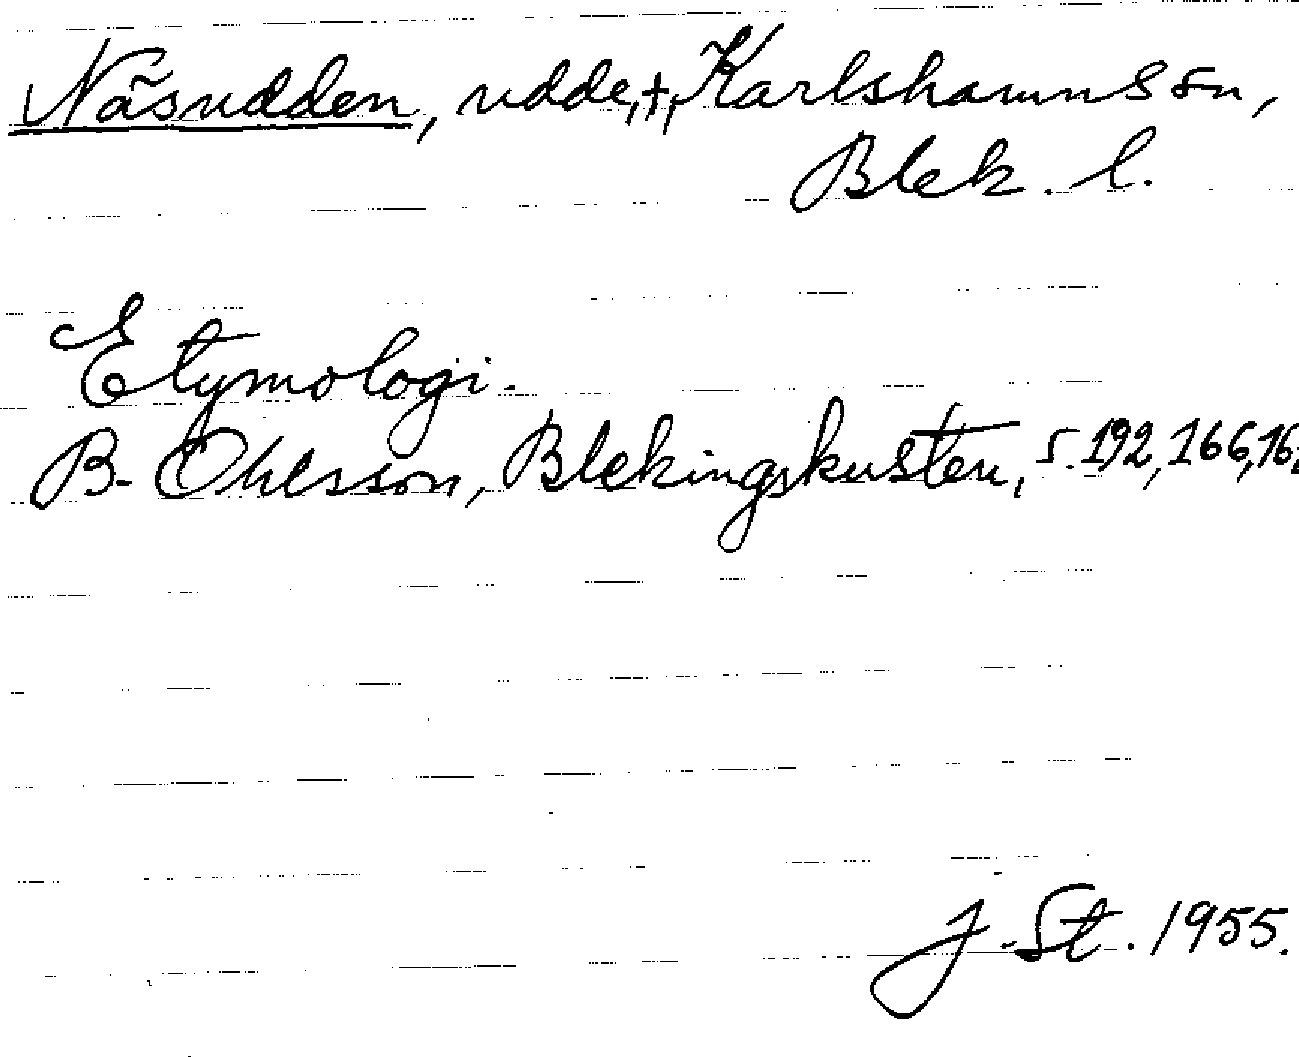 Näsudden, udde, †, Karlshamns sn,
Blek. l.
Etymologi.
B. Ohlsson, Blekingskusten, s. 192, 166,
J. St. 1955.